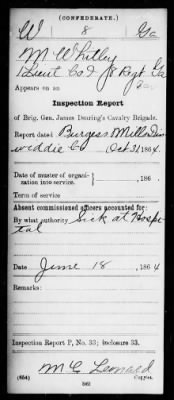 (CONFEDERATE.)
W 8 Ga
M Whitley
1 Lieut Co I, 8 Regt Ga
Cav
Appears on an
Inspection Report
of Brig. Gen. James Dearing's Cavalry Brigade.
Report dated Burgess Mills Din
widdie Co Oct 31, 1864.
Date of muster of organi-
zation into service. , 186 .
Term of service
Absent commissioned officers accounted for:
By what authority Sick at Hosp
tal
Date June 18 , 1864
Remarks:
Inspection Report P, No. 33; inclosure 33.
M C Leonard
(654) Copyist.